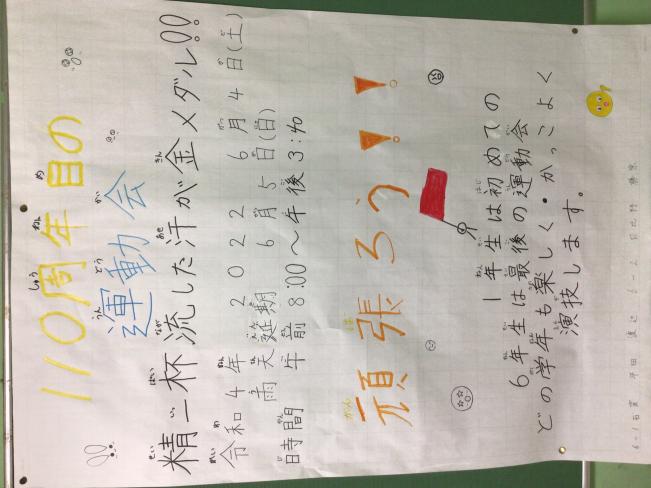 110周年目の
運動会
精一杯流した汗が金メダル!!
令和4年 2022 6月4日(土)
雨天延期 6月5日(日)
時間 午前8:00〜午後3:40
頑張ろう!!
1年生は初めての
6年生は最後の運動会
どの学年も楽しく・かっこよく
演技します。